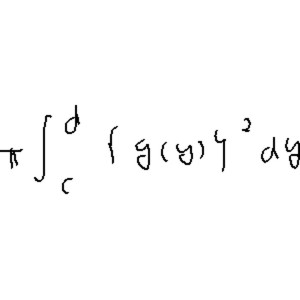 π ∫_c^d { g(y) }² dy